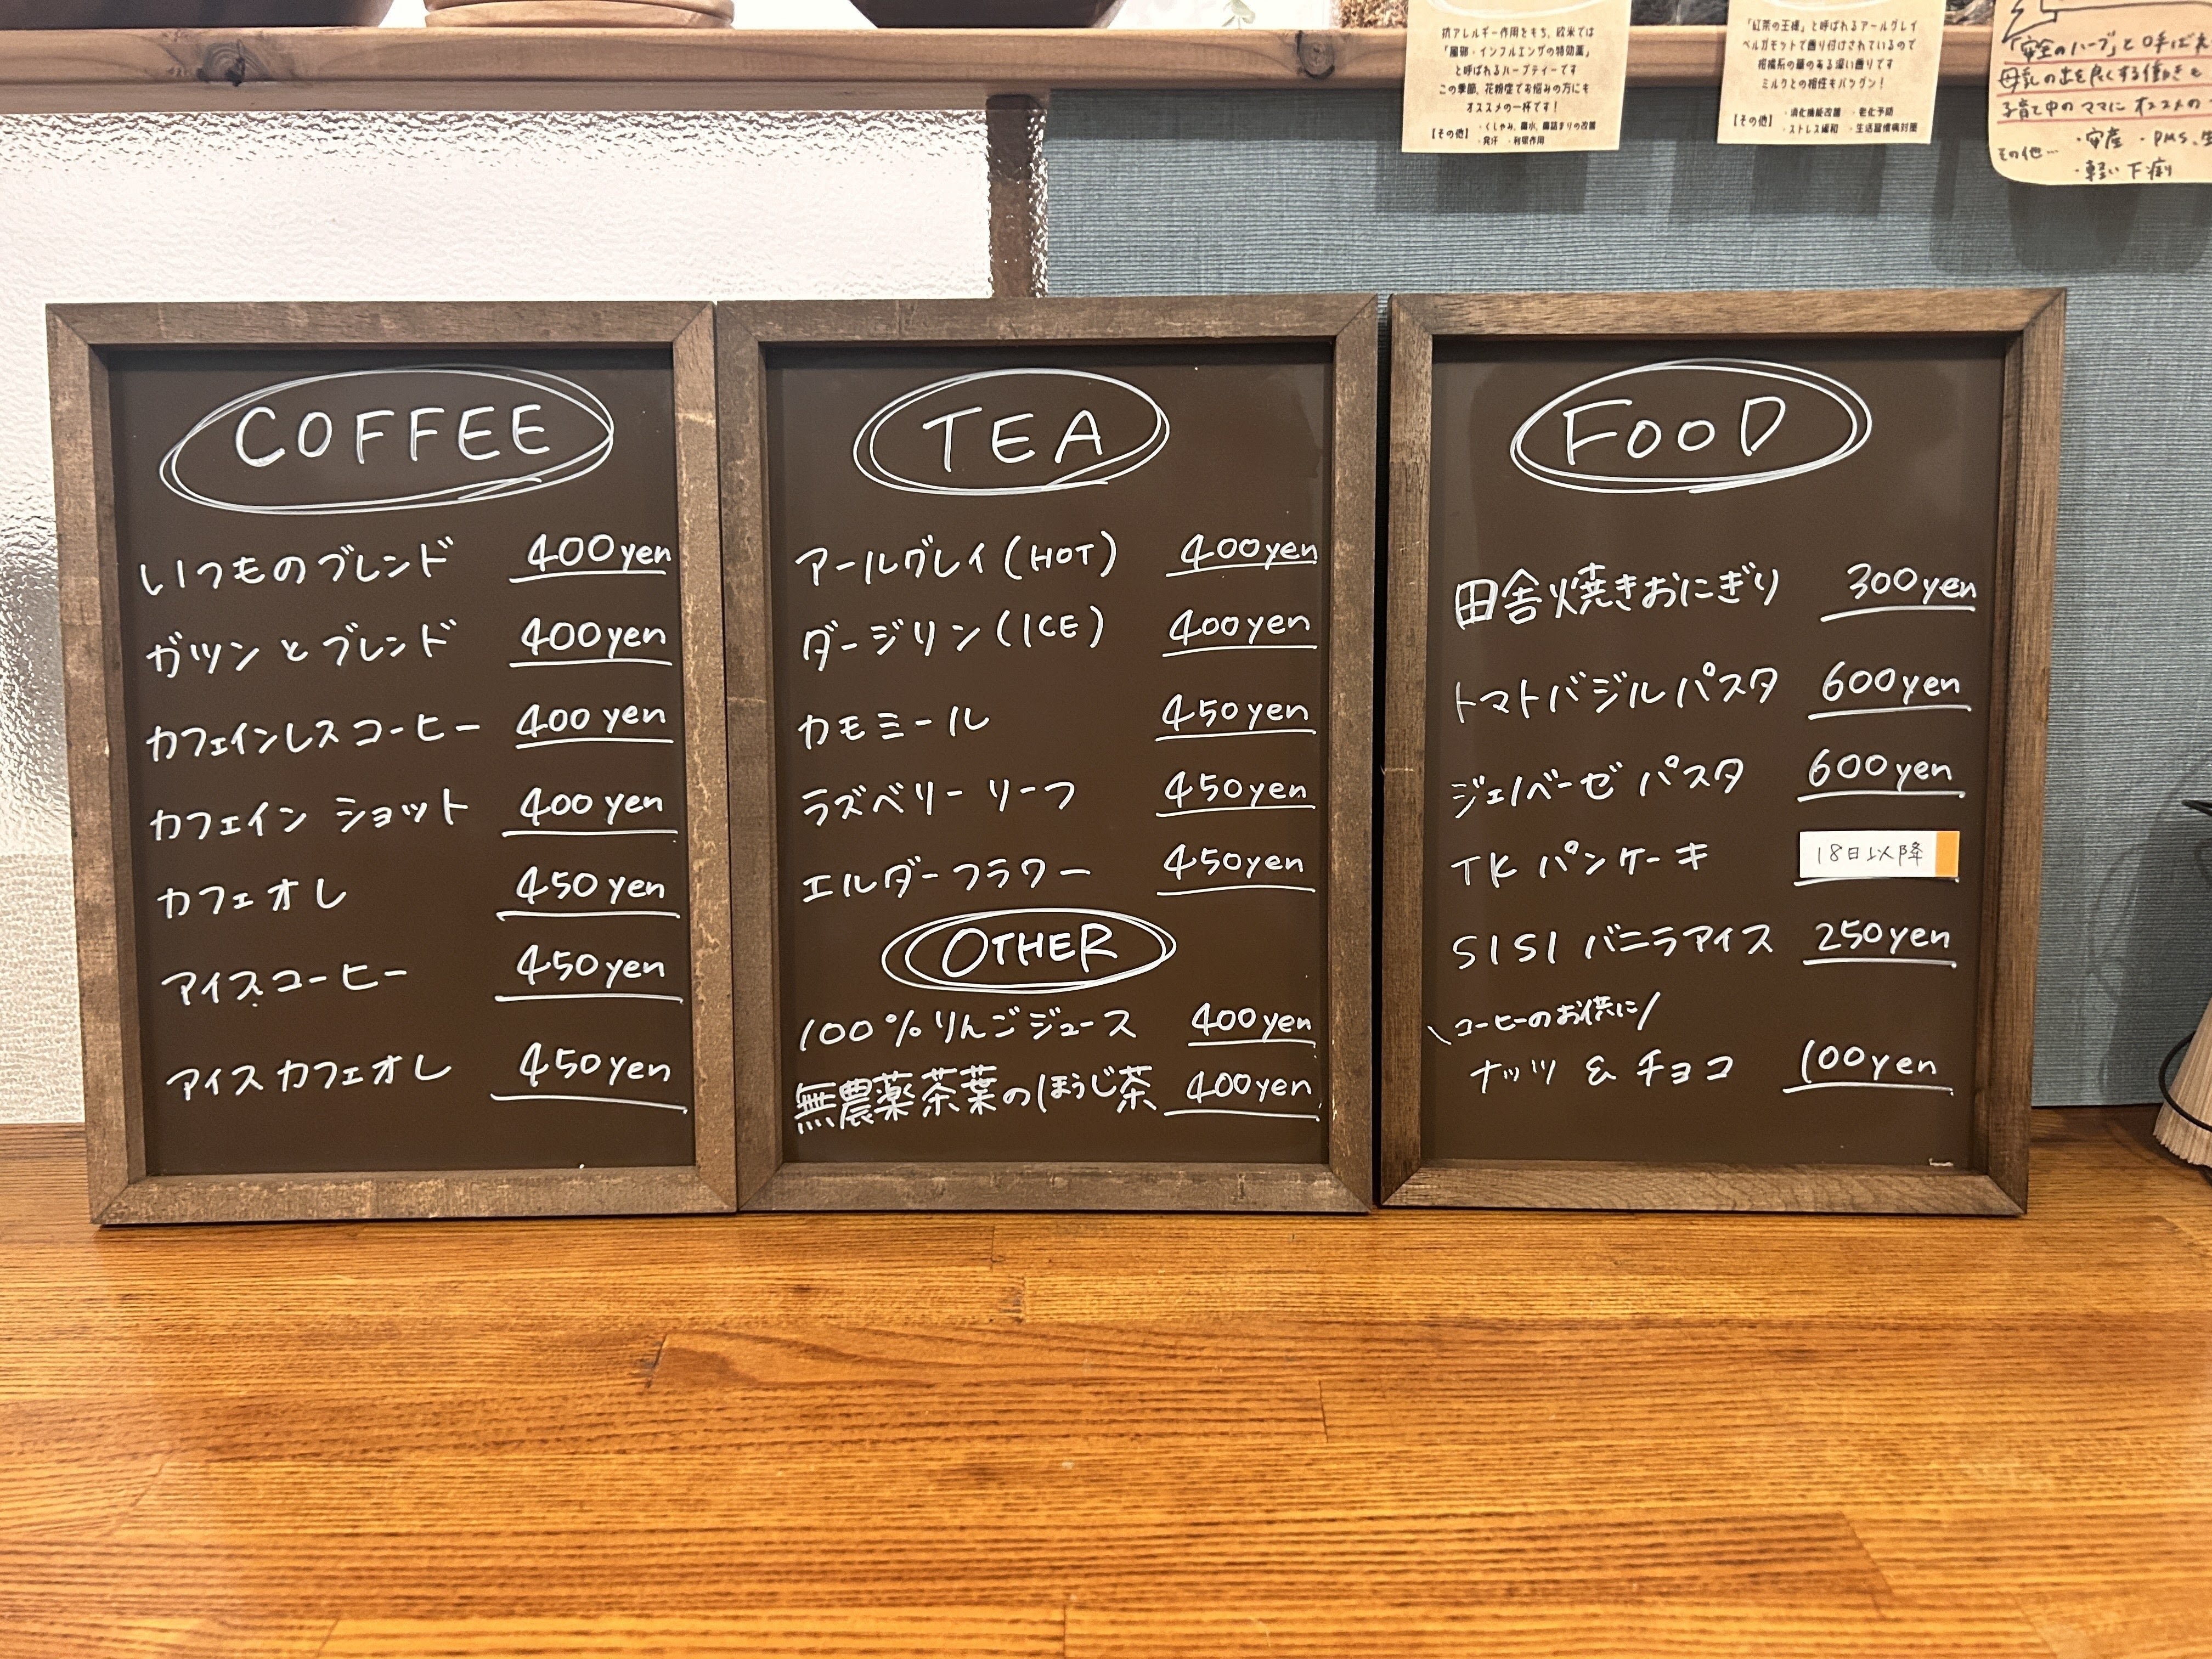 抗アレルギー作用をもち、欧米では
「風邪・インフルエンザの特効薬」
と呼ばれるハーブティーです
この季節、花粉症でお悩みの方にも
オススメの一杯です！
【その他】・くしゃみ、鼻水、鼻詰まりの改善
・発汗 ・利尿作用
「紅茶の王様」と呼ばれるアールグレイ
ベルガモットで香り付けされているので
柑橘系の華のある深い香りです
ミルクとの相性もバツグン！
【その他】・消化機能改善 ・老化予防
・ストレス緩和 ・生活習慣病対策
「安全のハーブ」と呼ばれ
母乳の出を良くする働きも
子育て中のママにオススメの
その他… ・安産 ・PMS、
・軽い下痢
COFFEE
いつものブレンド 400yen
ガツンとブレンド 400yen
カフェインレスコーヒー 400yen
カフェイン ショット 400yen
カフェオレ 450yen
アイスコーヒー 450yen
アイスカフェオレ 450yen
TEA
アールグレイ(HOT) 400yen
ダージリン(ICE) 400yen
カモミール 450yen
ラズベリーリーフ 450yen
エルダーフラワー 450yen
OTHER
100%りんごジュース 400yen
無農薬茶葉のほうじ茶 400yen
FOOD
田舎焼きおにぎり 300yen
トマトバジルパスタ 600yen
ジェノベーゼパスタ 600yen
TKパンケーキ 18日以降
SISIバニラアイス 250yen
\コーヒーのお供に/
ナッツ&チョコ 100yen